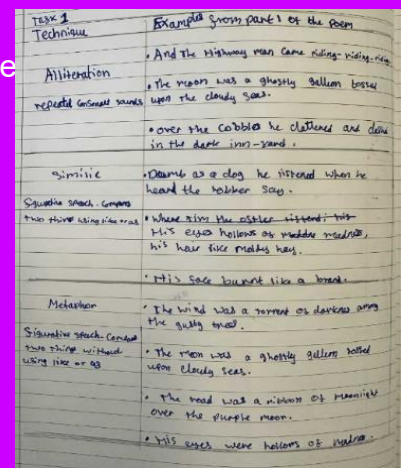 e
Task 1
Technique
Examples from part 1 of the Poem
Alliteration
repeated consonant sounds
• And the Highway man came riding-riding-riding
• The moon was a ghostly galleon tossed
upon the cloudy seas.
• over the cobbles he clattered and
in the dark inn-yard.
Similie
Figurative speach. Compares
two things using like or as
• Dumb as a dog he listened when he
heard the robber say.
• Where tim the ostler listend; his
His eyes hollows of madness,
his hair like moldy hay.
• His face burnt like a brand.
Metaphor
Figurative speach-
two things without
using like or as
• The wind was a torrent of darkness among
the gusty trees.
• The moon was a ghostly gallleon tossed
upon cloudy seas.
• The road was a ribbon of moonlight
over the purple moon.
• His eyes were hollows of madness.